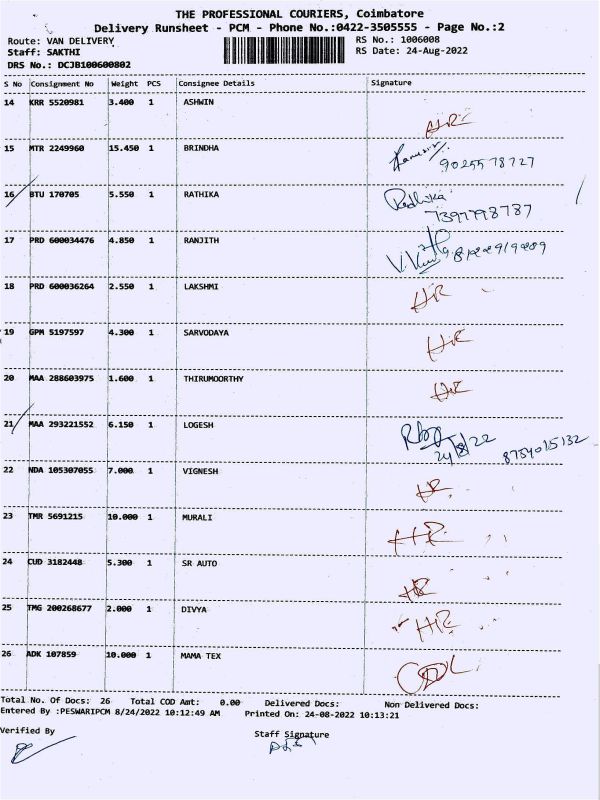 THE PROFESSIONAL COURIERS, Coimbatore
Delivery Runsheet - PCM - Phone No.:0422-3505555 - Page No.:2
Route: VAN DELIVERY RS No.: 1006008
Staff: SAKTHI RS Date: 24-Aug-2022
DRS No.: DCJB100600802
S No Consignment No Weight PCS Consignee Details Signature
14 KRR 5520981 3.400 1 ASHWIN
HR
15 MTR 2249960 15.450 1 BRINDHA
9025578727
16 BTU 170705 5.550 1 RATHIKA Radhika
7397798787
17 PRD 600034476 4.850 1 RANJITH
18 PRD 600036264 2.550 1 LAKSHMI HR
19 GPM 5197597 4.300 1 SARVODAYA HR
20 MAA 288603975 1.600 1 THIRUMOORTHY HR
21 MAA 293221552 6.150 1 LOGESH
24/8/22 8754015132
22 NDA 105307055 7.000 1 VIGNESH HR
23 TMR 5691215 10.000 1 MURALI HR
24 CUD 3182448 5.300 1 SR AUTO HR
25 TMG 200268677 2.000 1 DIVYA HR
26 ADK 107859 10.000 1 MAMA TEX
Total No. Of Docs: 26 Total COD Amt: 0.00 Delivered Docs: Non Delivered Docs:
Entered By :PESWARIPCM 8/24/2022 10:12:49 AM Printed On: 24-08-2022 10:13:21
Verified By Staff Signature